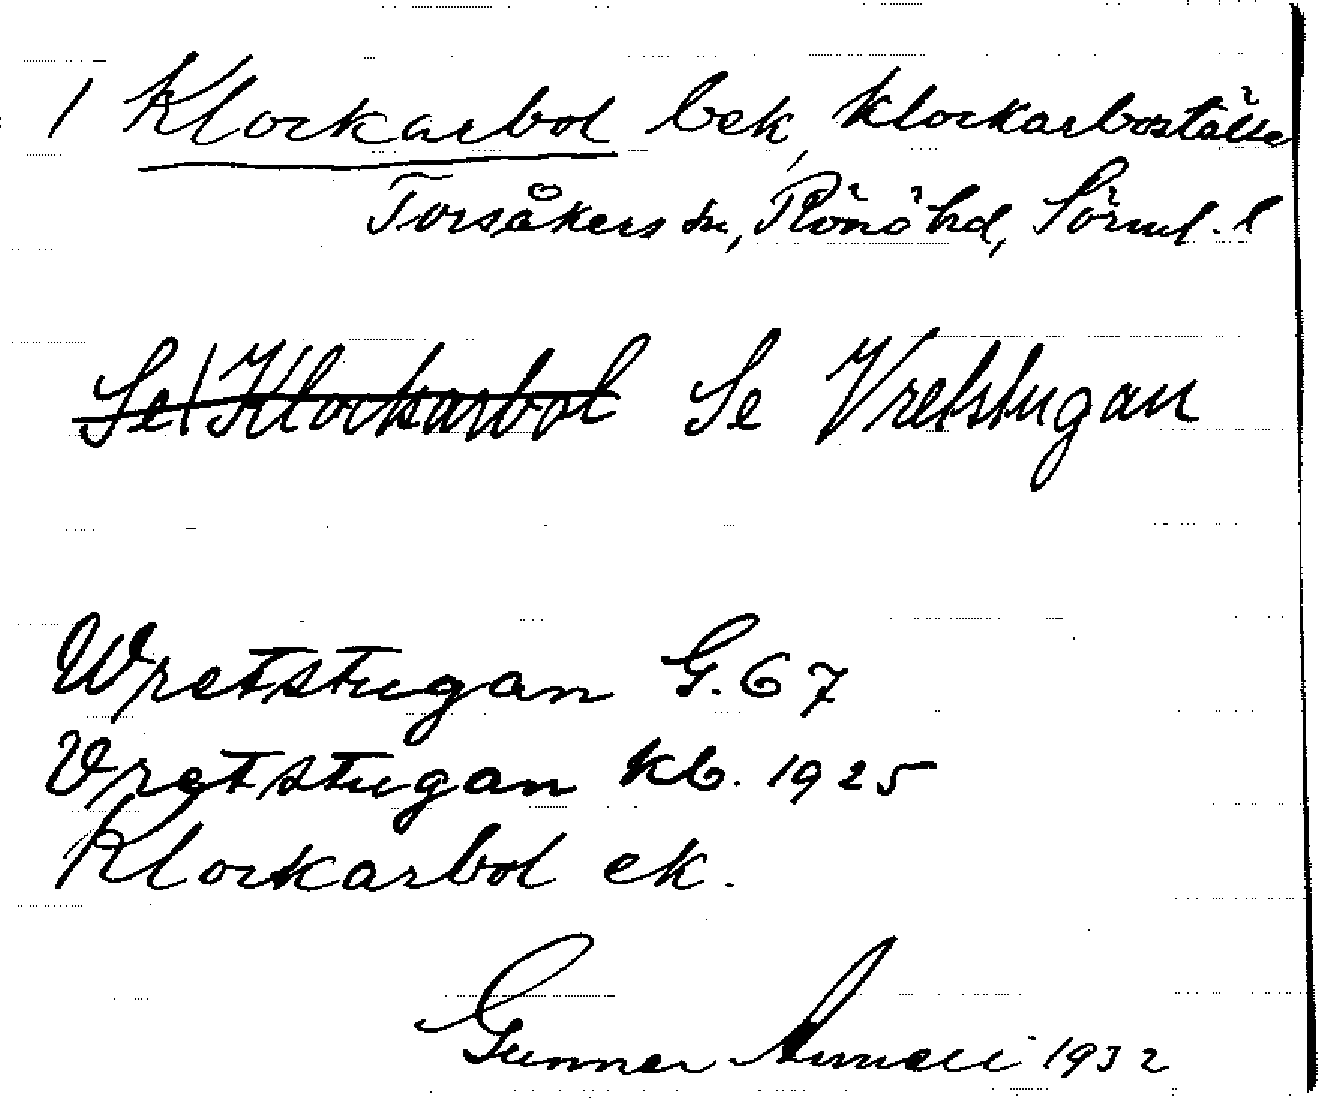 1 Klockarbol bek, klockarboställe
Torsåkers sn, Rönö hd, Sörml. l
Se 1 Klockarbol Se Vretstugan
Wretstugan G. 67
Vretstugan kb. 1925
Klockarbol ek.
Gunnar 1932